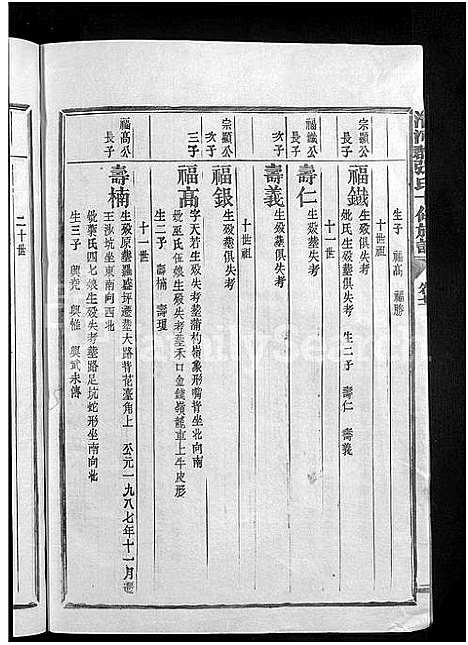 生子 福高 福勝
十世祖
宗顯公長子
福鐵
妣氏生歿墓俱失考 生二子 壽仁 壽義
十一世
福鐵公長子
壽仁
生歿墓俱失考
次子
壽義
生歿墓俱失考
十世祖
宗顯公次子
福銀
生歿墓俱失考
三子
福高
字天若生歿失考墓蒲杓嶺象形嘴背坐北向南
妣巫氏伍娘生歿失考墓禾口金錢嶺 車上牛皮形
生二子 壽楠 壽瓊
十一世
福高公長子
壽楠
生歿原墓 盛坪遷墓大路背花臺角上 公元一九八七年十一月
王汝坑坐東南向西北
妣葉氏四七娘生歿失考墓路足坑蛇形坐南向北
生三子 與堯 與惟 與武未傳
二十世